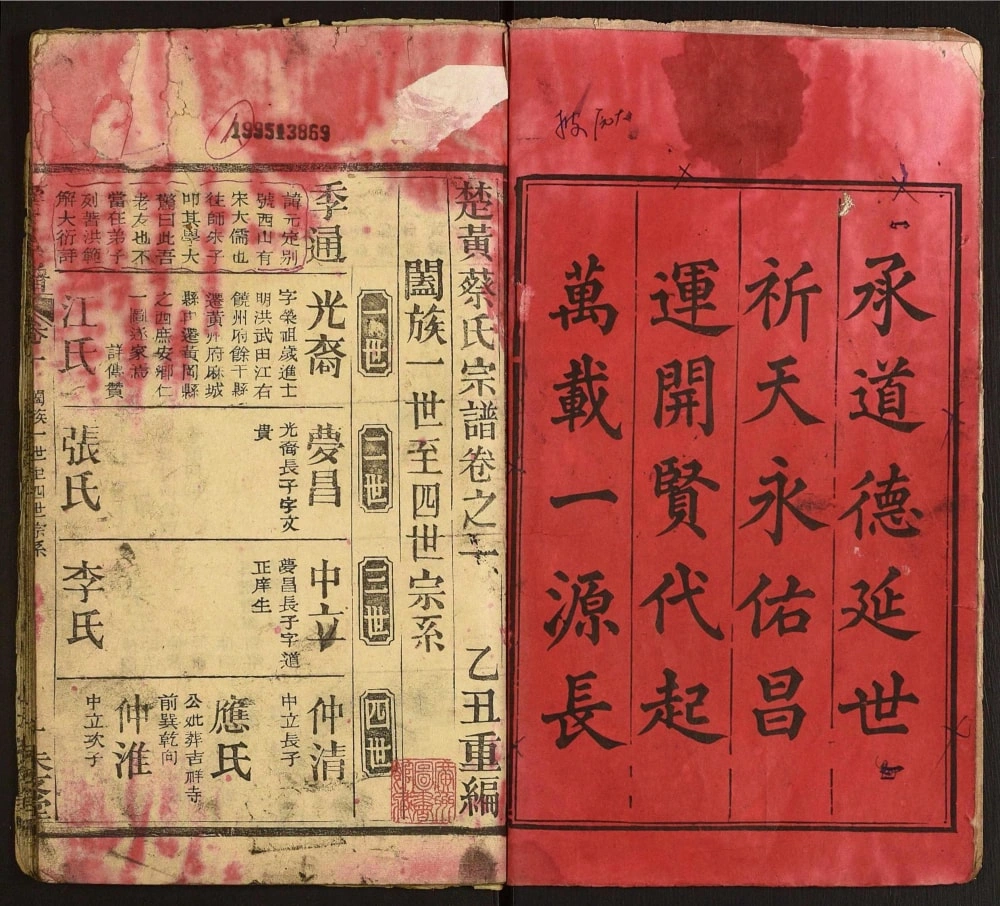 承道德延世
祈天永佑昌
運開賢代起
萬載一源長
199513869
楚黃蔡氏宗譜卷之一 乙丑重編
闔族一世至四世宗系
一世
二世
三世
四世
季通
諱元定别
號西山有
宋大儒也
往師朱子
叩其學大
驚曰此吾
老友也不
當在弟子
列著洪範
解大衍詳
光裔
字榮祖歲進士
明洪武田江右
饒州府餘干縣
遷黃州府麻城
縣再遷黃岡縣
之西庶安鄉仁
一圖遂家焉
詳傳贊
江氏
夢昌
光裔長子字文
貴
張氏
中立
夢昌長子字道
正庠生
李氏
仲清
中立長子
應氏
公妣葬吉祥寺
前巽乾向
仲淮
中立次子
闔族一世至四世宗系